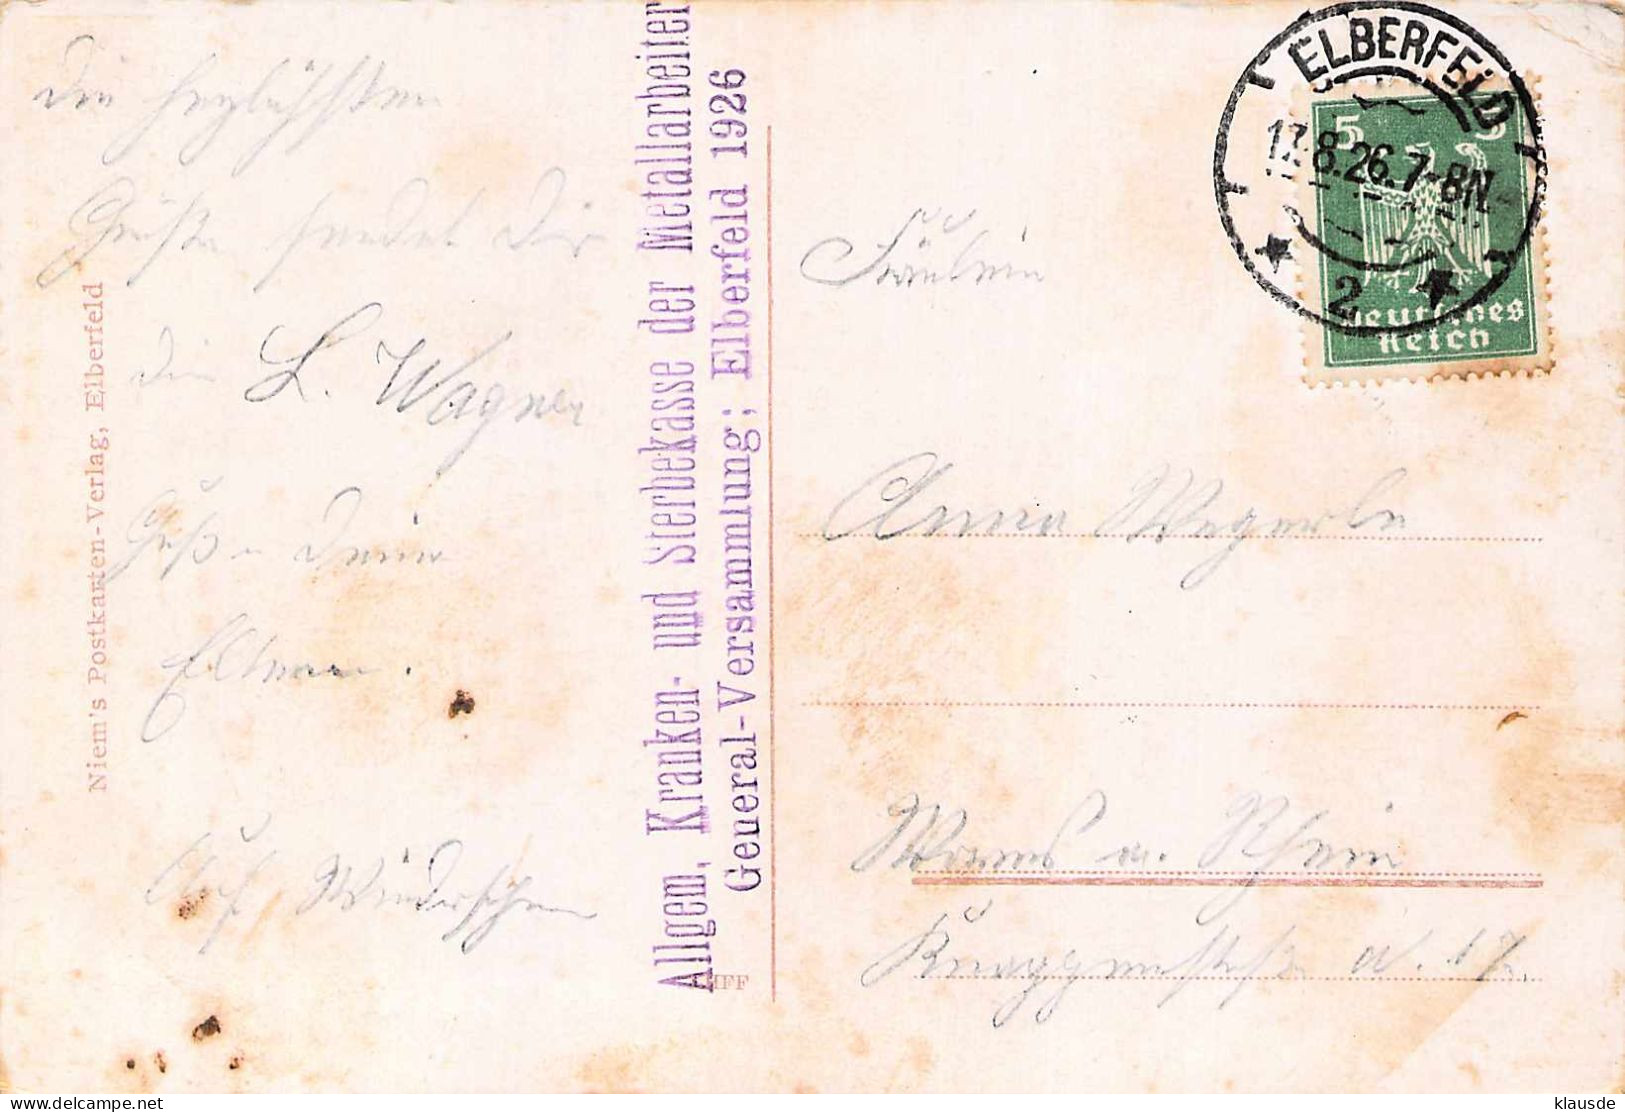 Die herzlichsten
Grüße sendet Dir
die L. Wagner
Gruß Deine
Eltern.
Auf Wiedersehen
Niem's Postkarten-Verlag, Elberfeld
Allgem, Kranken- und Sterbekasse der Metallarbeiter
General-Versammlung; Elberfeld 1926
ELBERFELD
17.8.26.7-8N.
2
5 5
Deutsches
Reich
Fräulein
Anna Wegerle
Worms a. Rhein
HFF
klausde